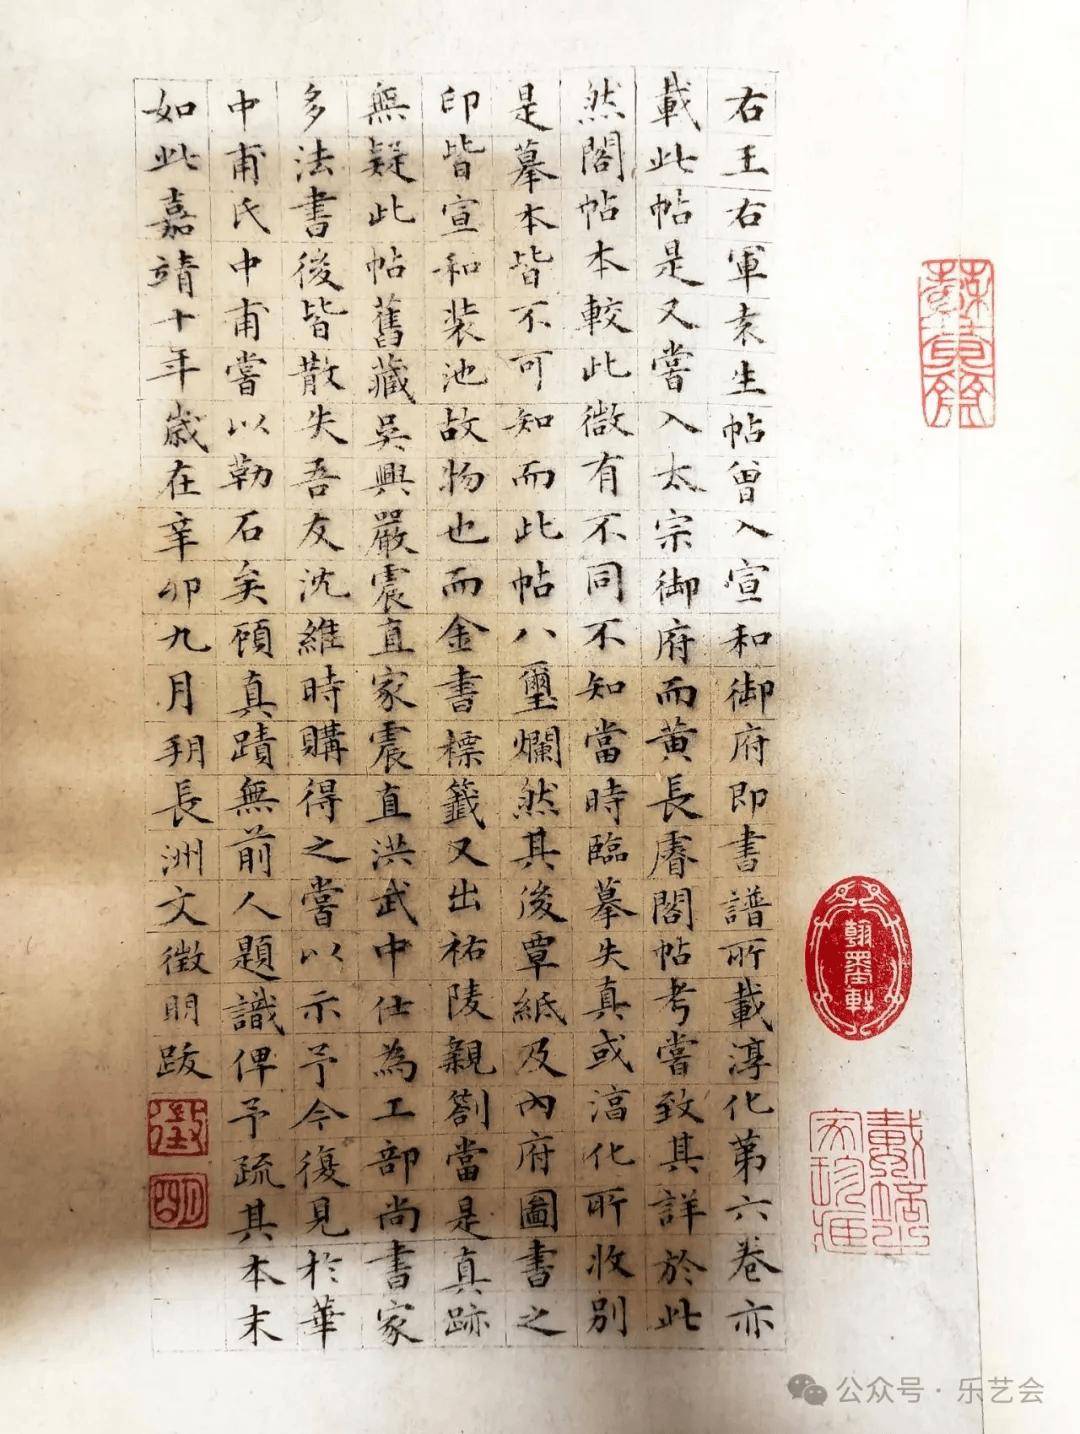 右王右軍袁生帖曾入宣和御府即書譜所載淳化第六卷亦
載此帖是又嘗入太宗御府而黄長睿閣帖考嘗致其詳於此
然閣帖本較此微有不同不知當時臨摹失真或淳化所收别
是摹本皆不可知而此帖八璽爛然其後覃紙及內府圖書之
印皆宣和裝池故物也而金書標籤又出祐陵親劄當是真跡
無疑此帖舊藏吳興嚴震直家震直洪武中仕為工部尚書家
多法書後皆散失吾友沈維時購得之嘗以示予今復見於華
中甫氏中甫嘗以勒石矣顧真蹟無前人題識俾予疏其本末
如此嘉靖十年歲在辛卯九月朔長洲文徵明跋
徵
明
翰墨軒
公众号·乐艺会